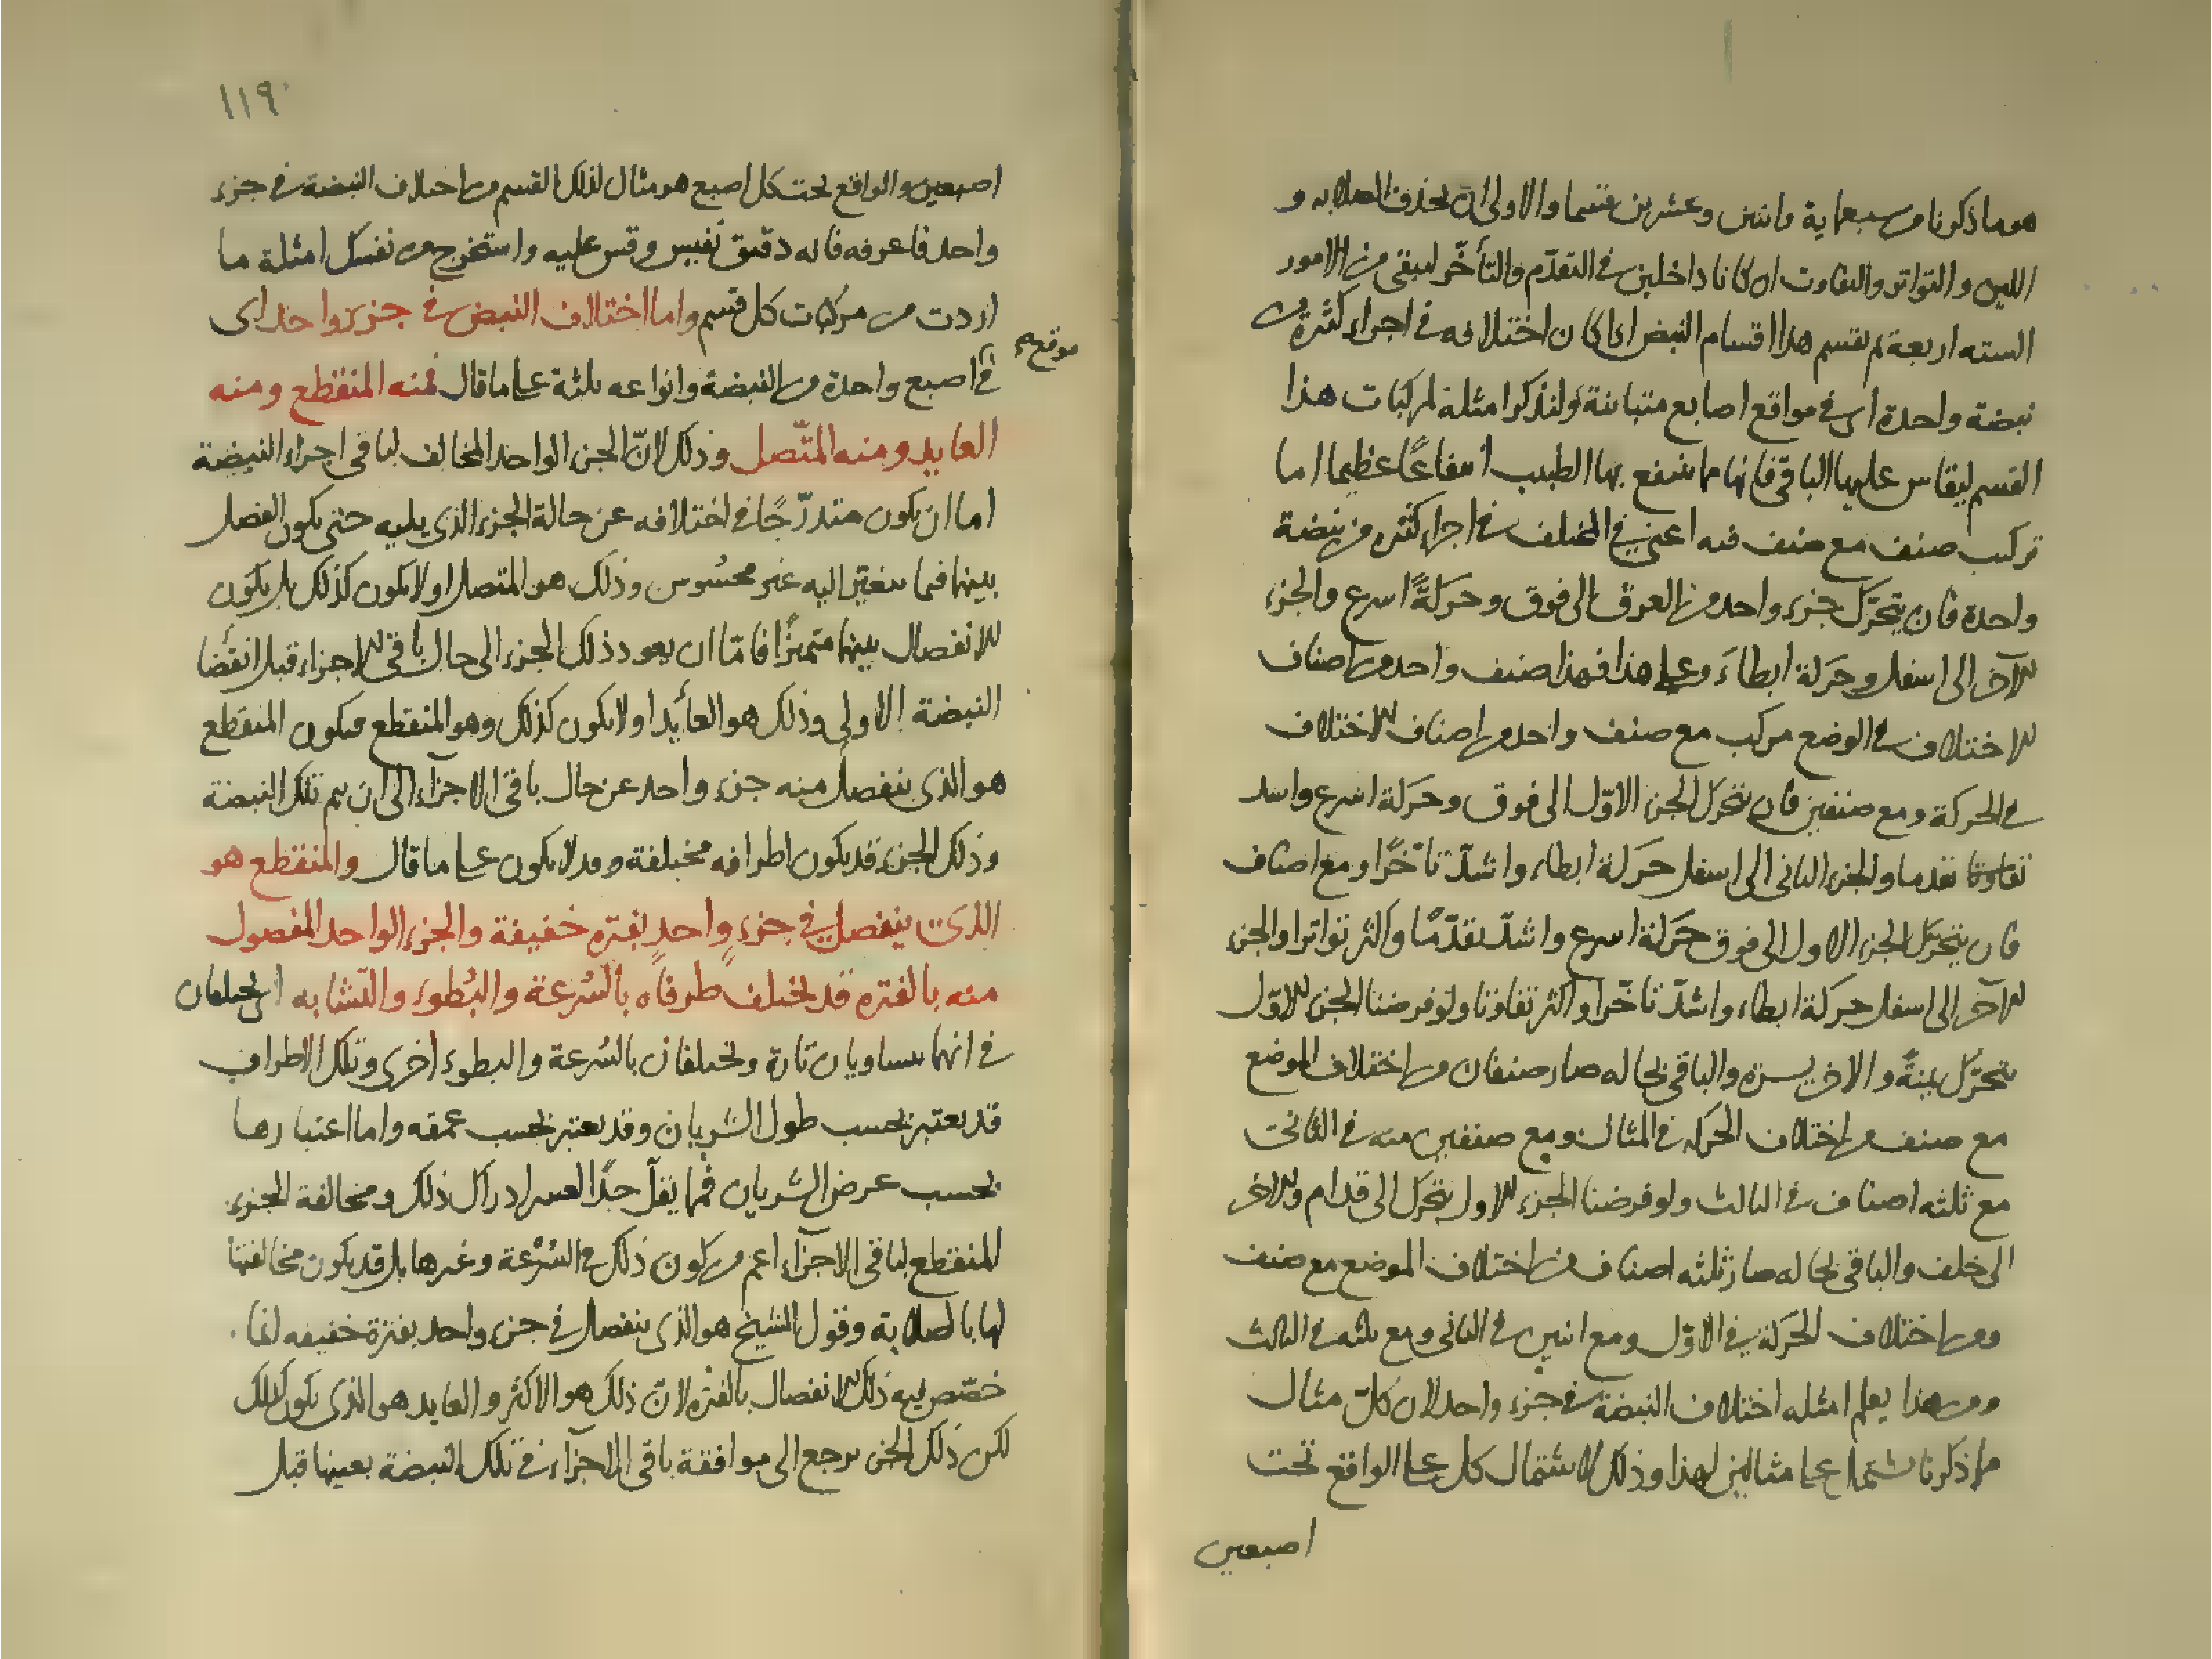 هو ما ذكرنا من سبعماية واثنين وعشرين قسما والاولى ان يحذف الصلابه و
اللين والتواتر والتفاوت ان كانا داخلين في التقدّم والتأخّر ليبقى من الامور
السته اربعة ثم نقسم هذا اقسام النبض اذا كان اختلافه في اجزاء كثيرة من
نبضة واحدة اى في مواقع اصابع متباينة ولنذكر امثلة لمركبات هذا
القسم ليقاس عليها الباقى فانها مما ينتفع بها الطبيب انتفاعًا عظيما اما
تركب صنف مع صنف فيه اعنى في المختلف في اجزاء كثيره من نبضة
واحدة فان يتحرّك جزء واحد من العرق الى فوق وحركةً اسرع والجزء
الآخر الى اسفل وحركة ابطاء وعلى هذا فهذا صنف واحد من اصناف
الاختلاف في الوضع مركب مع صنف واحد من اصناف الاختلاف
في الحركة ومع صنفين فان يتحرك الجزء الاوّل الى فوق وحركة اسرع واشد
تقدما والجزء الثانى الى اسفل حركة ابطاء واشدّ تاخّرا ومع اصناف
فان يتحرّك الجزء الاول الى فوق حركة اسرع واشدّ تقدّمًا واكثر تواترا والجزء
الآخر الى اسفل حركة ابطاء واشدّ تاخّرا واكثر تفاوتا ولو فرضنا الجزء الاوّل
يتحرّك يمنةً والاخر يسرة والباقى بحاله صار صنفان من اختلاف الموضع
مع صنف من اختلاف الحركه في المثال ومع صنفين منه في الثانى
مع ثلثه اصناف في الثالث ولو فرضنا الجزء الاول يتحرك الى قدام والاخر
الى خلف والباقى بحاله صار ثلثه اصناف من اختلاف الموضع مع صنف
ومن اختلاف الحركة في الاوّل ومع اثنين في الثانى ومع ثلثه في الثالث
ومن هذا يعلم امثله اختلاف النبضة في جزء واحد لان كل مثال
مما ذكرنا يشتمل على مثالين لهذا وذلك لاشتمال كل على الواقع تحت
اصبعين
١١٩
اصبعين والواقع تحت كل اصبع هو مثال لذلك القسم من اختلاف النبضة في جزء
واحد فاعرفه فانه دقيق نفيس وقس عليه واستخرج من نفسك امثلة ما
اردت من مركبات كل قسم واما اختلاف النبض في جزء واحد اى
موقع
في اصبع واحدة من النبضة وانواعه ثلثة على ما قال فمنه المنقطع ومنه
العايد ومنه المتّصل وذلك لانّ الجزء الواحد المخالف لباقى اجزاء النبضة
اما ان يكون متدرّجًا في اختلافه عن حالة الجزء الذى يليه حتى يكون الفصل
بينهما فيما يتغيّر اليه غير محسُوس وذلك هو المتصل او لا يكون كذلك بل يكون
الانفصال بينهما متميّزًا فامّا ان يعود ذلك الجزء الى حال باقى الاجزاء قبل انقضا
النبضة الاولى وذلك هو العائد او لا يكون كذلك وهو المنقطع فيكون المنقطع
هو الذى ينفصل منه جزء واحد عن حال باقى الاجزاء الى ان يتم تلك النبضة
وذلك الجزء قد يكون اطرافه مختلفة وقد لا يكون على ما قال والمنقطع هو
الذى ينفصل في جزءٍ واحدٍ بفترةٍ خفيفة والجزء الواحد المفصول
منه بالفتره قد يختلف طرفاه بالسُرعة والبُطوء والتّشابه اى يختلفان
في انهما يتساويان تارة ويختلفان بالسُرعة والبطوء اخرى وتلك الاطراف
قد يعتبر بحسب طول الشريان وقد يعتبر بحسب عمقه واما اعتبارها
بحسب عرض الشريان فمما يقلّ جدًّا لعسر ادراك ذلك ومخالفة الجزء
المنقطع لباقى الاجزاء اعم من كون ذلك في السُرْعة وغيرها بل قد يكون مخالفتها
لها بالصلابة وقول الشيخ هو الذى ينفصل في جزء واحد بفترة خفيفه انما
خصّص فيه ذلك الانفصال بالفتْرة لانّ ذلك هو الاكثر والعايد هو الذى يكون كذلك
لكن ذلك الجزء يرجع الى موافقة باقى الاجزاء في تلك النبضة بعينها قبل